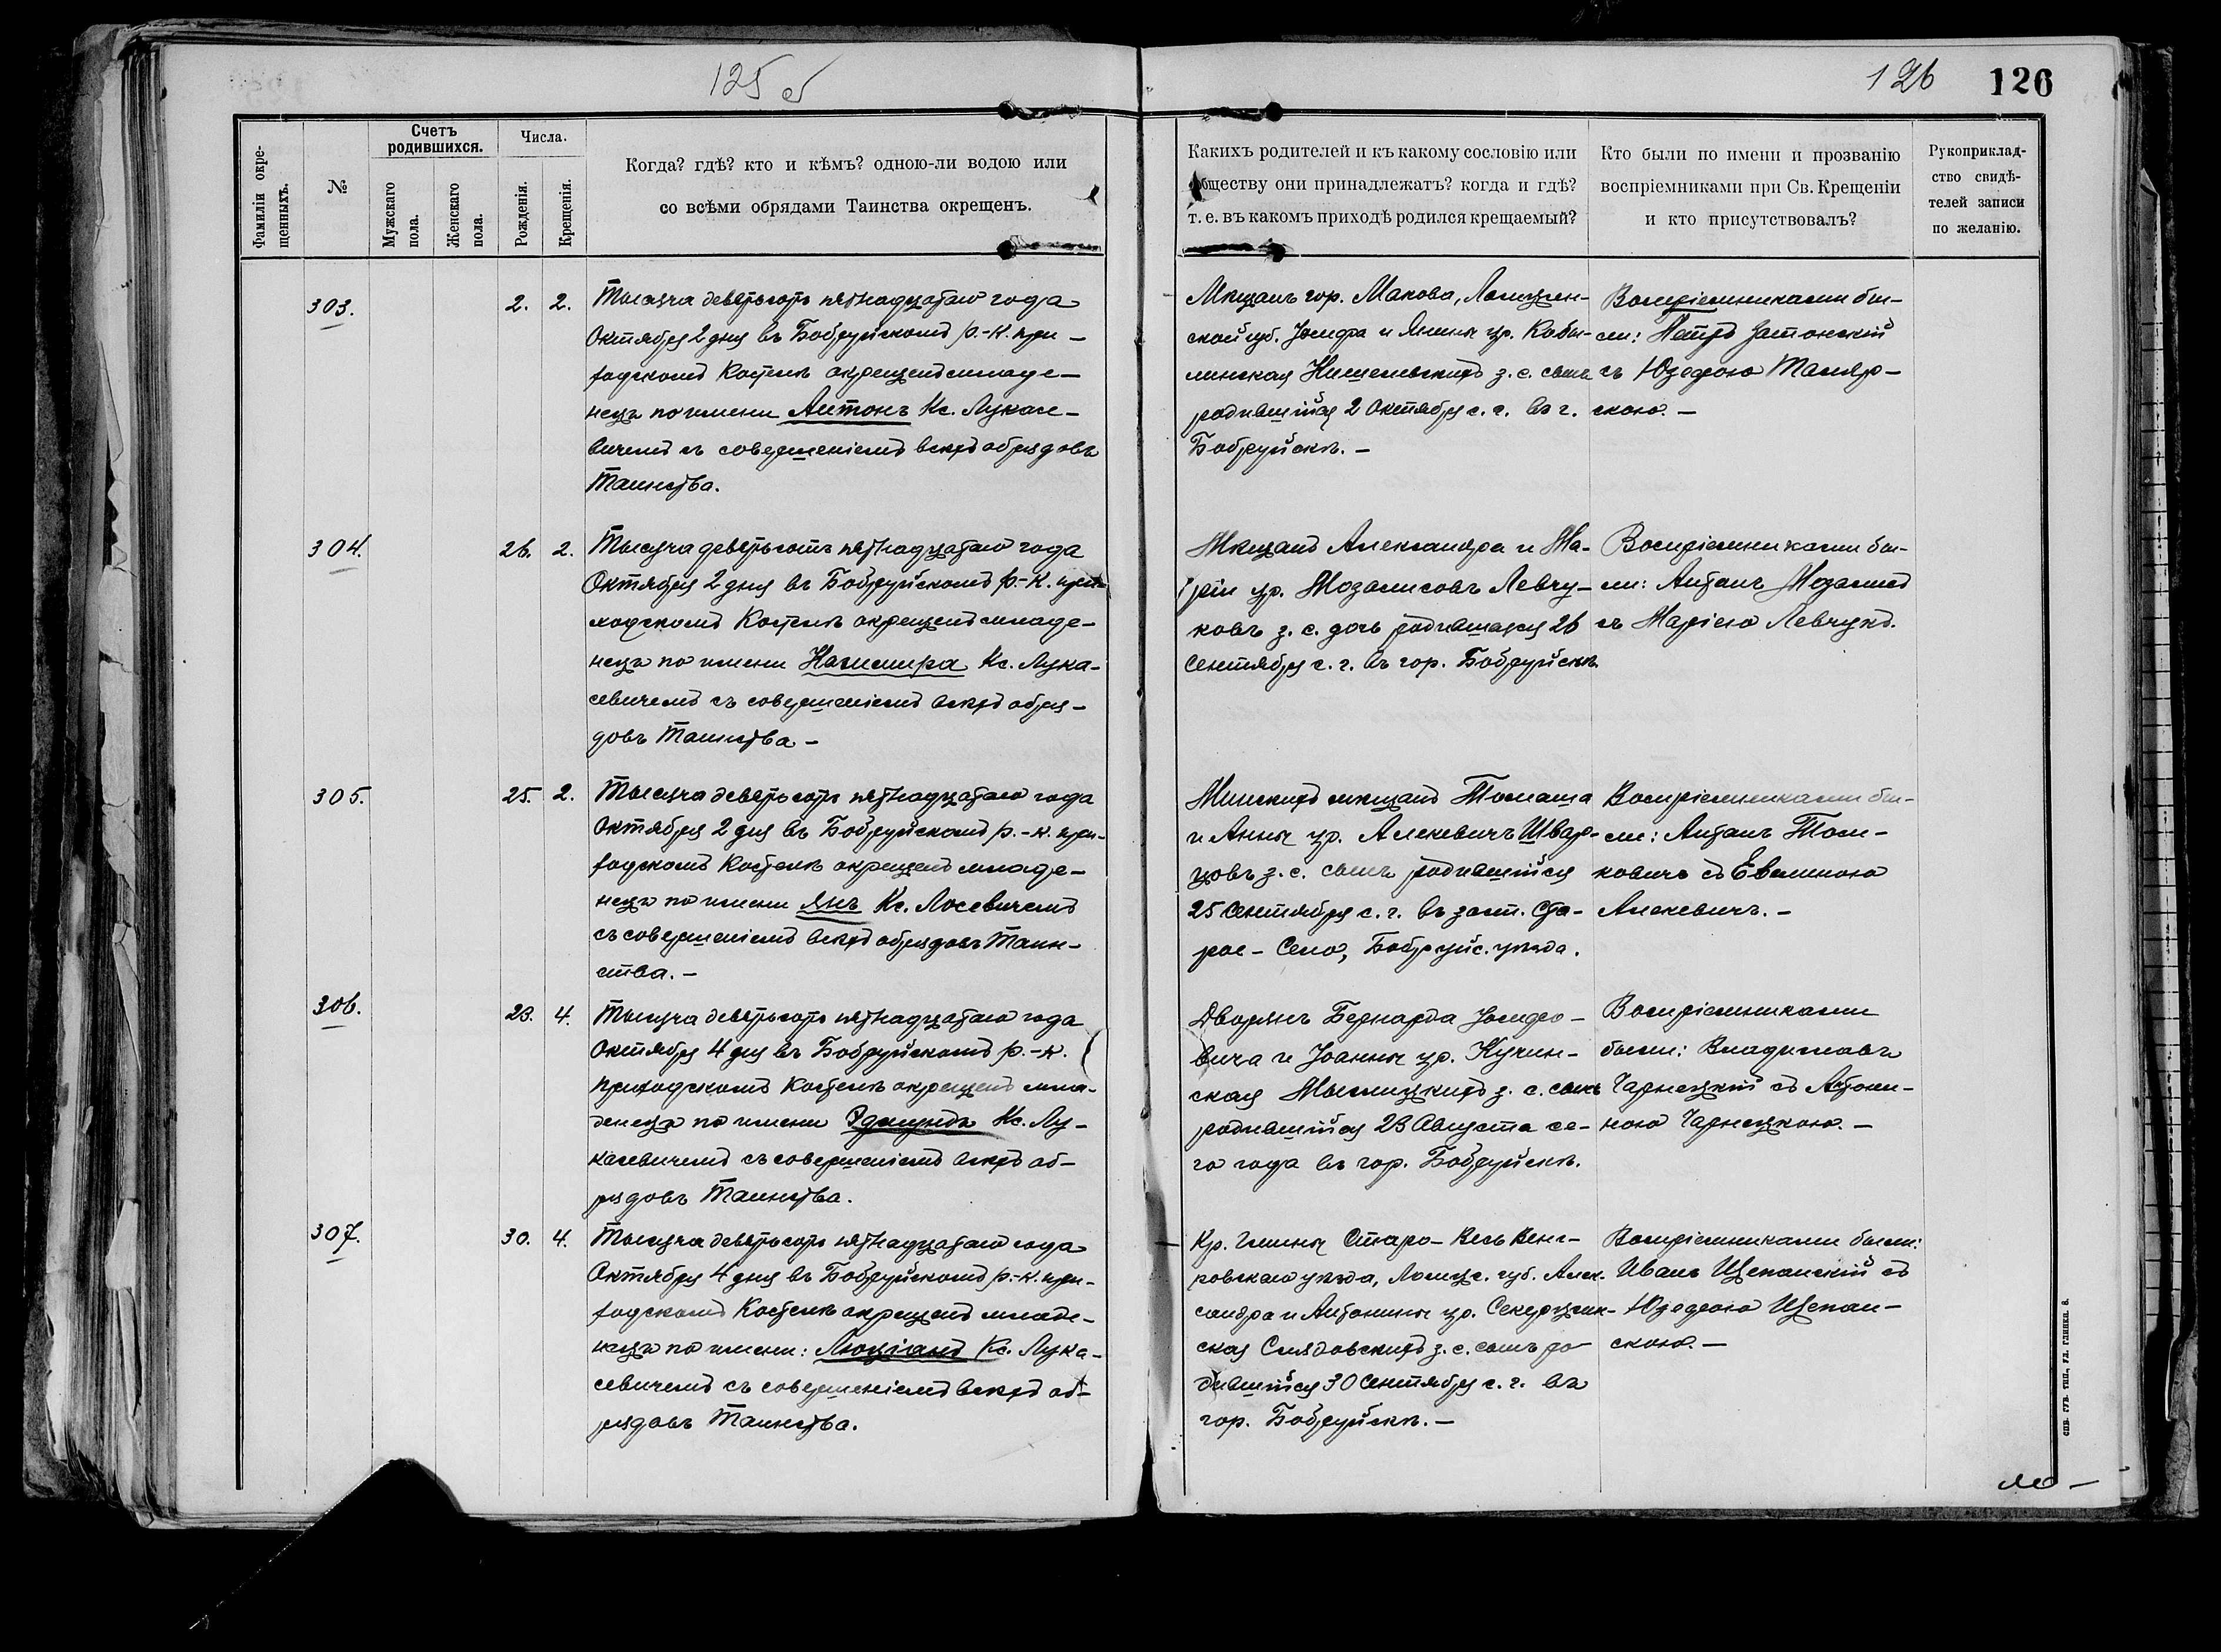 125 об
126 126
Фамиліи окре-
щенныхъ.
№
Счетъ
родившихся.
Мужскаго
пола.
Женскаго
пола.
Числа.
Рожденія.
Крещенія.
Когда? гдѣ? кто и кѣмъ? одною-ли водою или
со всѣми обрядами Таинства окрещенъ.
Какихъ родителей и къ какому сословію или
обществу они принадлежатъ? когда и гдѣ?
т. е. въ какомъ приходѣ родился крещаемый?
Кто были по имени и прозванію
воспріемниками при Св. Крещеніи
и кто присутствовалъ?
Рукоприклад-
ство свидѣ-
телей записи
по желанію.
303.
2. 2.
Тысяча девятьсотъ пятнадцатаго года
Октября 2 дня въ Бобруйскомъ р.-к. при-
ходскомъ Костелѣ окрещенъ младе-
нецъ по имени Антонъ Кс. Лукасе-
вичемъ съ совершеніемъ всѣхъ обрядовъ
Таинства.
Мѣщанъ гор. Макова, Ломжин-
ской губ. Іосифа и Янины ур. Кобы-
линская з. с. сынъ
родившійся 2 Октября с. г. въ г.
Бобруйскѣ. –
Воспріемниками бы-
ли: Петръ Затонскій
съ Юзефою Толяр-
скою. –
304.
26. 2.
Тысяча девятьсотъ пятнадцатаго года
Октября 2 дня въ Бобруйскомъ р.-к. при-
ходскомъ Костелѣ окрещенъ младе-
нецъ по имени Казимира Кс. Лука-
севичемъ съ совершеніемъ всѣхъ обря-
довъ Таинства –
Мѣщанъ Александра и Ма-
ріи ур. Мозалисовъ Левчу-
ковъ з. с. дочь родившаяся 26
Сентября с. г. въ гор. Бобруйскѣ
Воспріемниками бы-
ли: Антонъ Мозалисъ
съ Маріею Левчукъ.
305.
25. 2.
Тысяча девятьсотъ пятнадцатаго года
Октября 2 дня въ Бобруйскомъ р.-к. при-
ходскомъ Костелѣ окрещенъ младе-
нецъ по имени Янъ Кс. Лосевичемъ
съ совершеніемъ всѣхъ обрядовъ Таин-
ства. –
Минскихъ мѣщанъ Томаша
и Анны ур. Алекевичъ Швар-
цовъ з. с. сынъ родившійся
25 Сентября с. г. въ заст. Ста-
рое-Село, Бобруйс. уѣзда.
Воспріемниками бы-
ли: Антонъ Том-
ковичъ съ Евелиною
Алекевичъ. –
306.
23. 4.
Тысяча девятьсотъ пятнадцатаго года
Октября 4 дня въ Бобруйскомъ р.-к.
приходскомъ Костелѣ окрещенъ мла-
денецъ по имени Эдмундъ Кс. Лу-
касевичемъ съ совершеніемъ всѣхъ об-
рядовъ Таинства.
Дворянъ Бернарда Іосифо-
вича и Іоанны ур. Кучин-
ская Мыслицкихъ з. с. сынъ
родившійся 23 Августа се-
го года въ гор. Бобруйскѣ.
Воспріемниками
были: Владиславъ
Чарнецкій съ Антони-
ною Чарнецкою. –
307.
30. 4.
Тысяча девятьсотъ пятнадцатаго года
Октября 4 дня въ Бобруйскомъ р.-к. при-
ходскомъ Костелѣ окрещенъ младе-
нецъ по имени: Люціанъ Кс. Лука-
севичемъ съ совершеніемъ всѣхъ об-
рядовъ Таинства.
Кр. Гмины Старо-Весь Венг-
ровскаго уѣзда, Ломжс. губ. Алек-
сандра и Антонины ур.
ская з. с. сынъ ро-
дившійся 30 Сентября с. г. въ
гор. Бобруйскѣ. –
Воспріемниками были:
Иванъ Щепанскій съ
Юзефою Щепан-
скою. –
СПБ. ГУБ. ТИП., УЛ. ГЛИНКИ. 8.